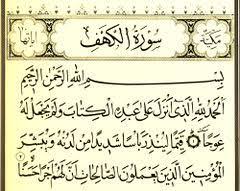 مكية سورة الكهف آياتها
بِسْمِ اللَّهِ الرَّحْمَٰنِ الرَّحِيمِ
الْحَمْدُ لِلَّهِ الَّذِي أَنْزَلَ عَلَىٰ عَبْدِهِ الْكِتَابَ وَلَمْ يَجْعَلْ لَهُ
عِوَجًا قَيِّمًا لِيُنْذِرَ بَأْسًا شَدِيدًا مِنْ لَدُنْهُ وَيُبَشِّرَ
الْمُؤْمِنِينَ الَّذِينَ يَعْمَلُونَ الصَّالِحَاتِ أَنَّ لَهُمْ أَجْرًا حَسَنًا